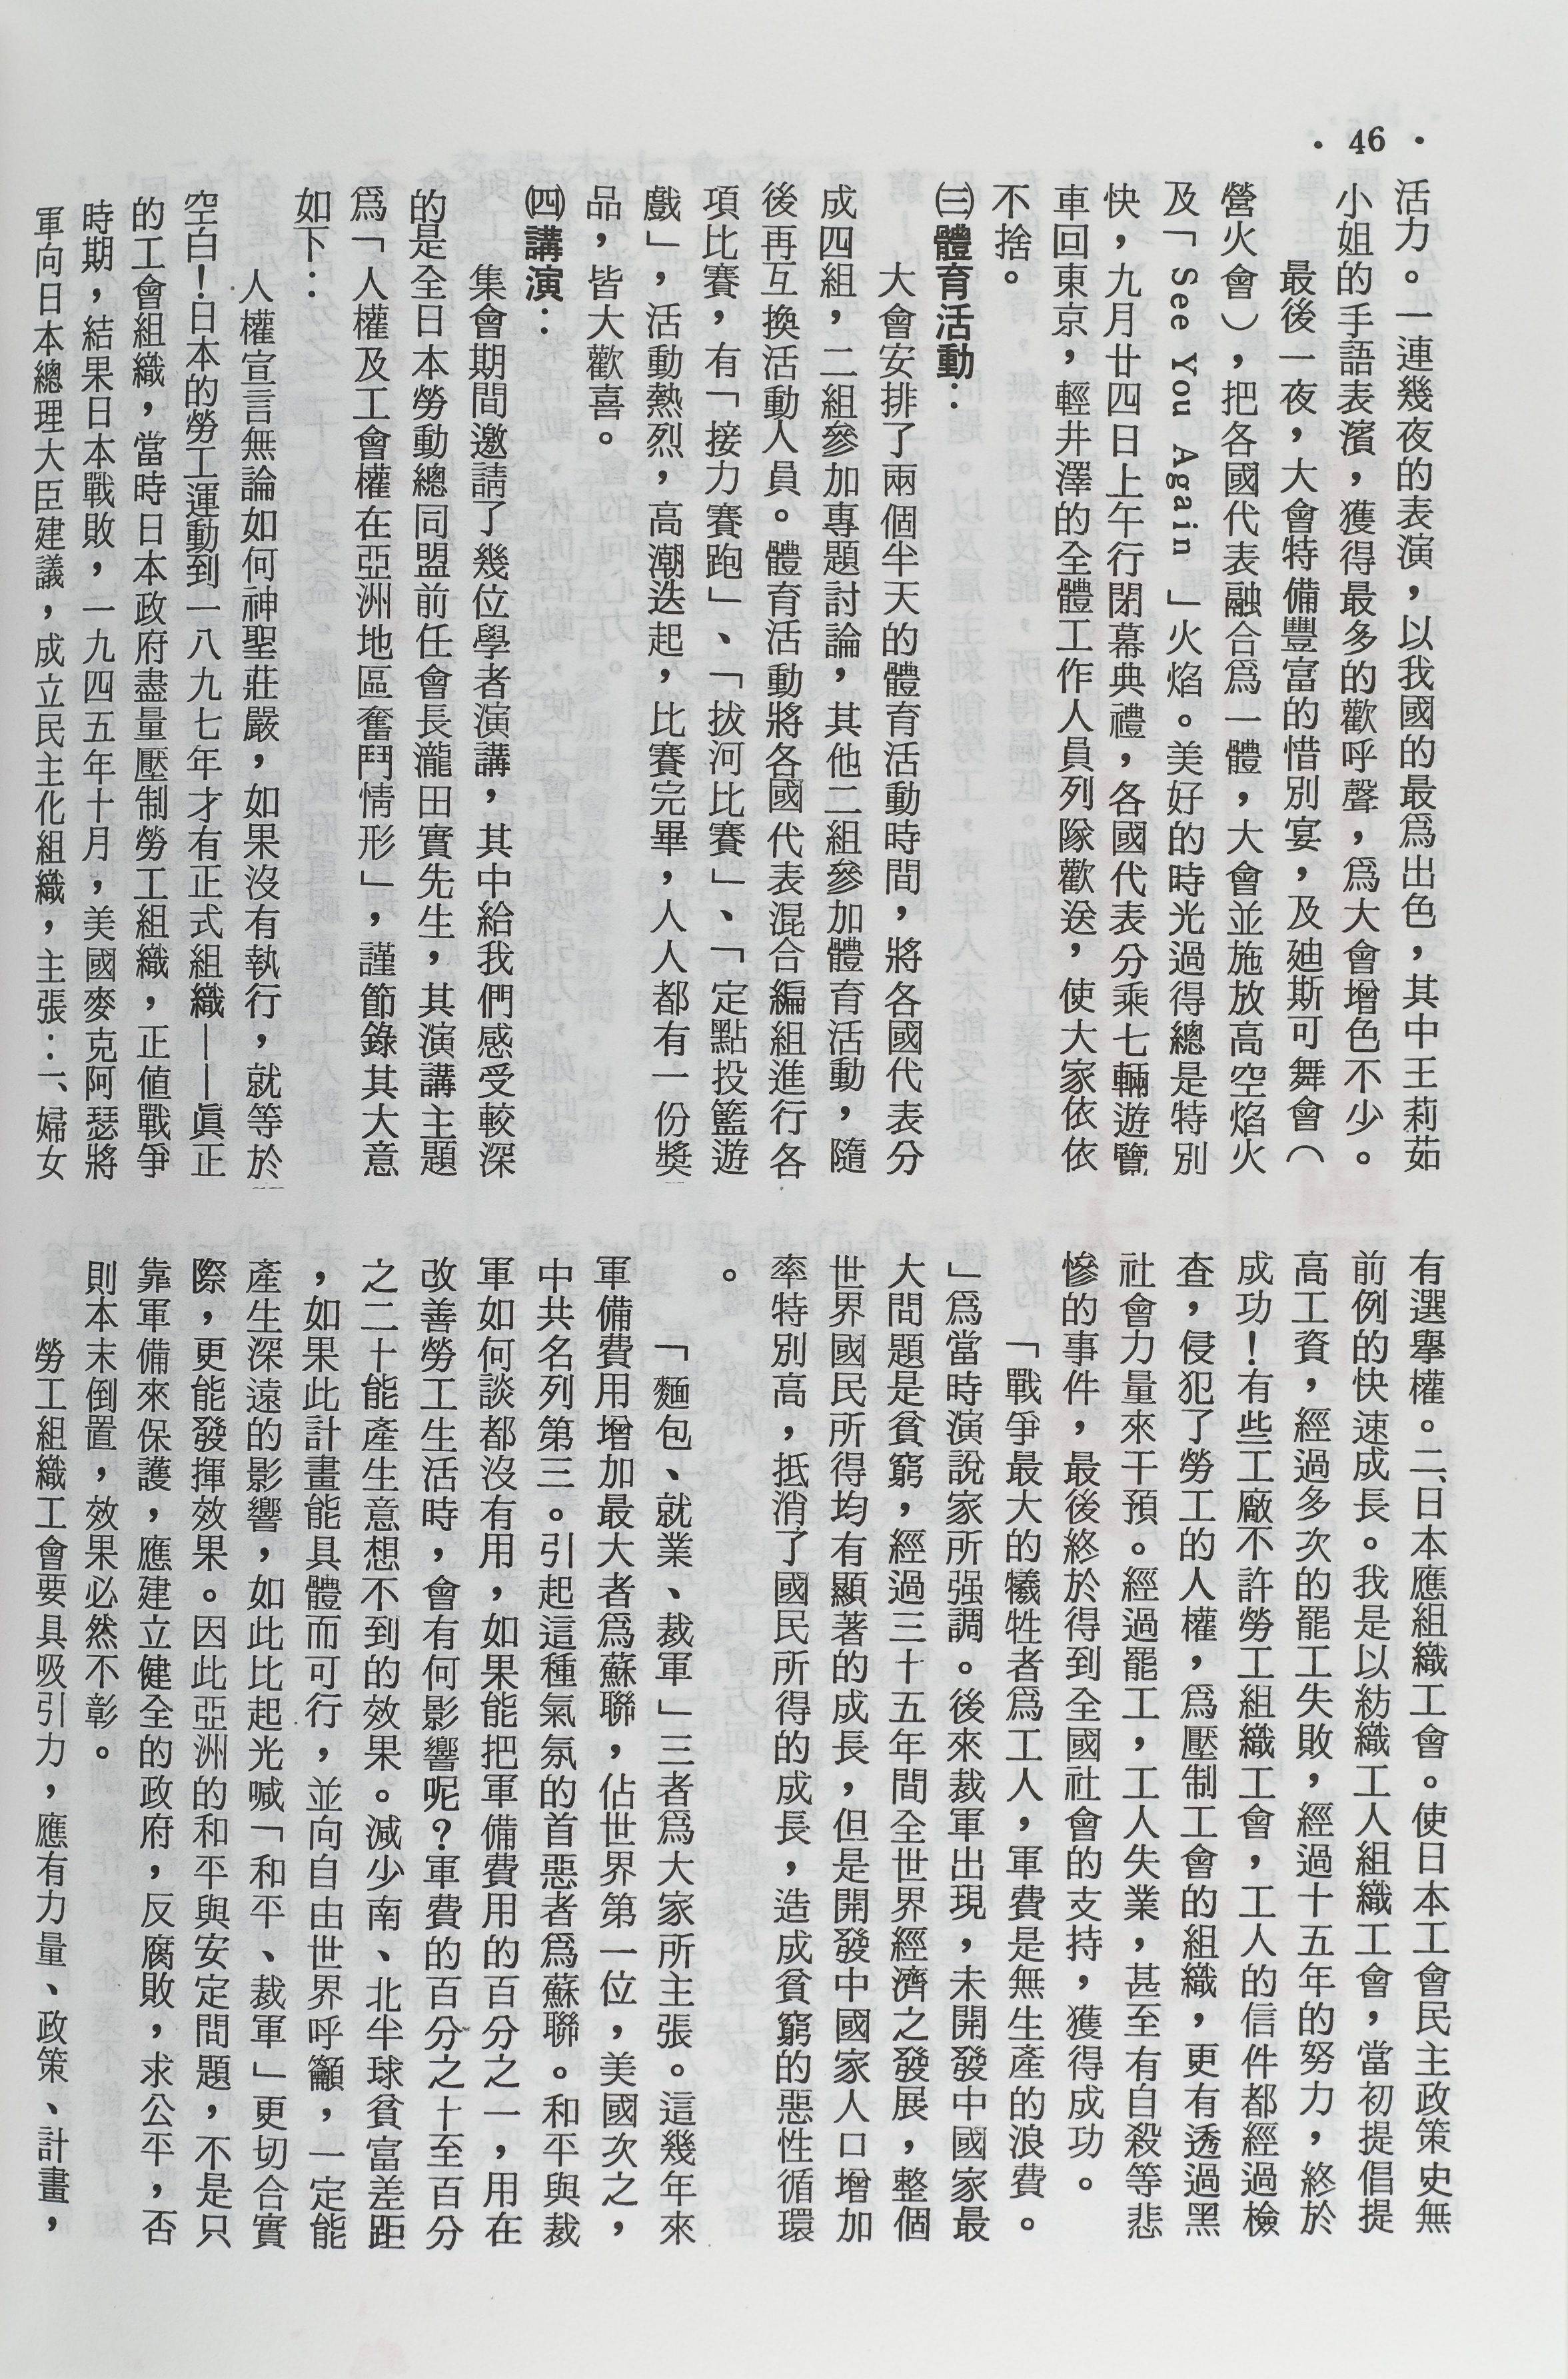 • 46 •
活力。一連幾夜的表演，以我國的最爲出色，其中王莉茹
小姐的手語表濱，獲得最多的歡呼聲，爲大會增色不少。
最後一夜，大會特備豐富的惜別宴，及廸斯可舞會（
營火會），把各國代表融合爲一體，大會並施放高空焰火
及「See You Again」火焰。美好的時光過得總是特別
快，九月廿四日上午行閉幕典禮，各國代表分乘七輛遊覽
車回東京，輕井澤的全體工作人員列隊歡送，使大家依依
不捨。
㈢體育活動：
大會安排了兩個半天的體育活動時間，將各國代表分
成四組，二組參加專題討論，其他二組參加體育活動，隨
後再互換活動人員。體育活動將各國代表混合編組進行各
項比賽，有「接力賽跑」、「拔河比賽」、「定點投籃遊
戲」，活動熱烈，高潮迭起，比賽完畢，人人都有一份獎
品，皆大歡喜。
㈣講演：
集會期間邀請了幾位學者演講，其中給我們感受較深
的是全日本勞動總同盟前任會長瀧田實先生，其演講主題
爲「人權及工會權在亞洲地區奮鬥情形」，謹節錄其大意
如下：
人權宣言無論如何神聖莊嚴，如果沒有執行，就等於
空白！日本的勞工運動到一八九七年才有正式組織——眞正
的工會組織，當時日本政府盡量壓制勞工組織，正値戰爭
時期，結果日本戰敗，一九四五年十月，美國麥克阿瑟將
軍向日本總理大臣建議，成立民主化組織，主張：一、婦女
有選舉權。二、日本應組織工會。使日本工會民主政策史無
前例的快速成長。我是以紡織工人組織工會，當初提倡提
高工資，經過多次的罷工失敗，經過十五年的努力，終於
成功！有些工廠不許勞工組織工會，工人的信件都經過檢
查，侵犯了勞工的人權，爲壓制工會的組織，更有透過黑
社會力量來干預。經過罷工，工人失業，甚至有自殺等悲
慘的事件，最後終於得到全國社會的支持，獲得成功。
「戰爭最大的犧牲者爲工人，軍費是無生產的浪費。
」爲當時演說家所强調。後來裁軍出現，未開發中國家最
大問題是貧窮，經過三十五年間全世界經濟之發展，整個
世界國民所得均有顯著的成長，但是開發中國家人口增加
率特別高，抵消了國民所得的成長，造成貧窮的惡性循環
。
「麵包、就業、裁軍」三者爲大家所主張。這幾年來
軍備費用增加最大者爲蘇聯，佔世界第一位，美國次之，
中共名列第三。引起這種氣氛的首惡者爲蘇聯。和平與裁
軍如何談都沒有用，如果能把軍備費用的百分之一，用在
改善勞工生活時，會有何影響呢？軍費的百分之十至百分
之二十能產生意想不到的效果。減少南、北半球貧富差距
，如果此計畫能具體而可行，並向自由世界呼籲，一定能
產生深遠的影響，如此比起光喊「和平、裁軍」更切合實
際，更能發揮效果。因此亞洲的和平與安定問題，不是只
靠軍備來保護，應建立健全的政府，反腐敗，求公平，否
則本末倒置，效果必然不彰。
勞工組織工會要具吸引力，應有力量、政策、計畫，